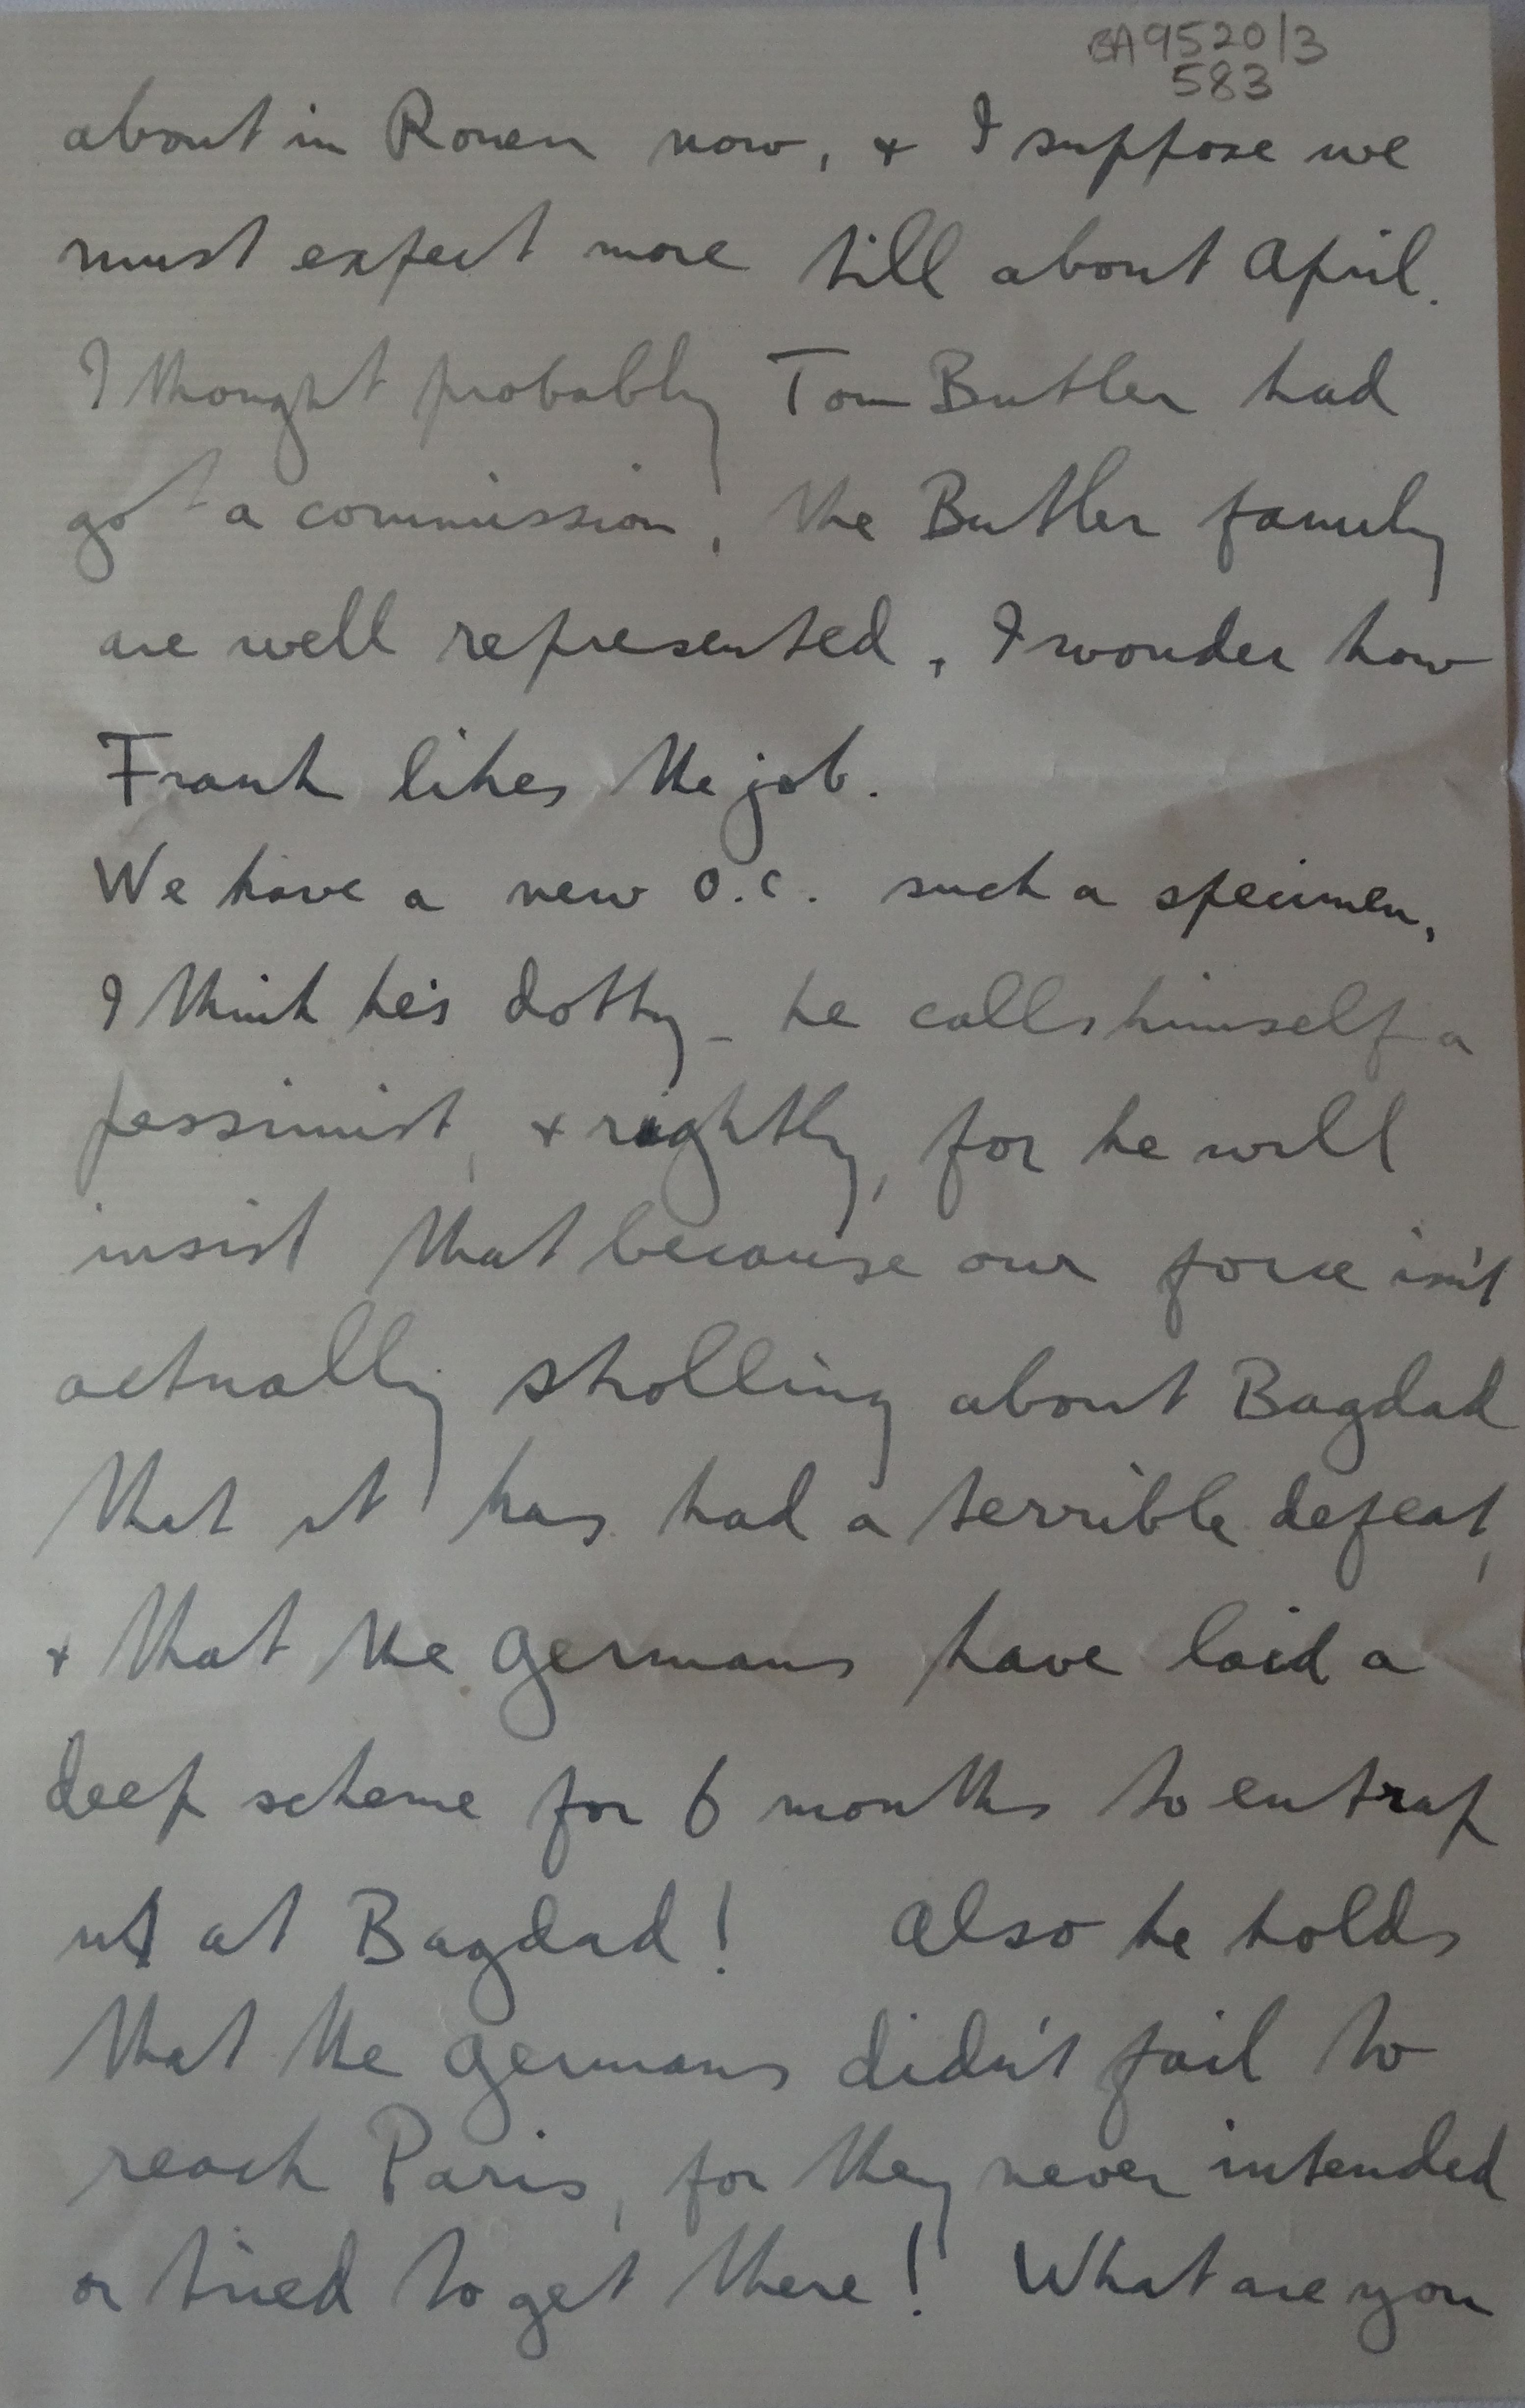 BA9520/3
583
about in Rouen now, & I suppose we
must expect more till about April.
I thought probably Tom Butler had
got a commission, the Butler family
are well represented, I wonder how
Frank likes the job.
We have a new O.C. such a specimen,
I think he's dotty - he calls himself a
pessimist, & rightly, for he will
insist that because our force isn't
actually strolling about Bagdad
that it has had a terrible defeat,
& that the Germans have laid a
deep scheme for 6 months to entrap
us at Bagdad! Also he holds
that the Germans didn't fail to
reach Paris, for they never intended
or tried to get there! What are you